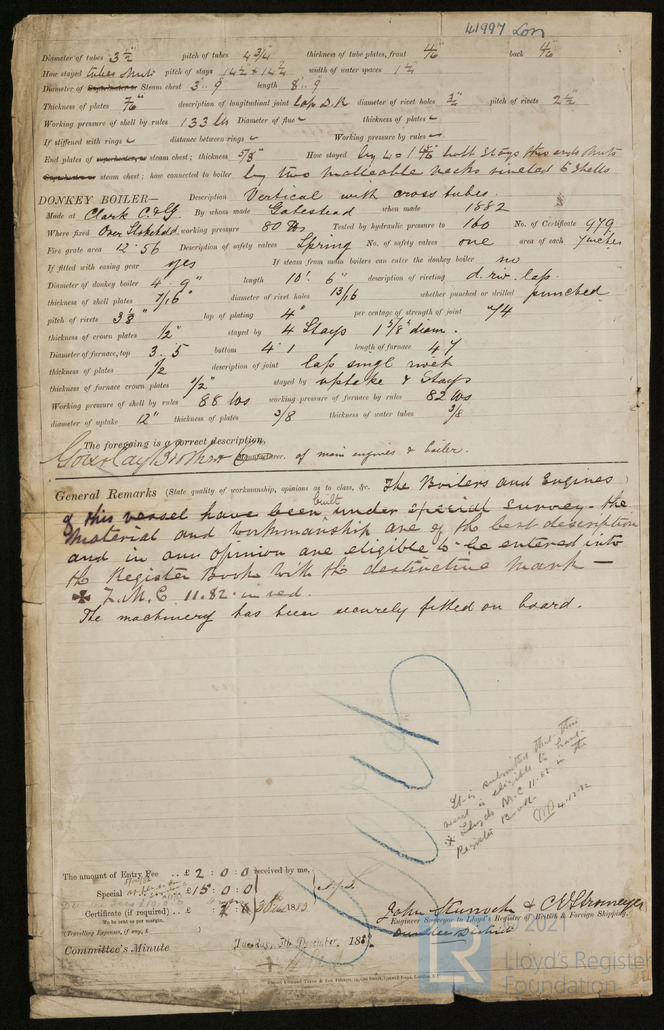 41997 Lon
Diameter of tubes 3½" pitch of tubes 4¾" thickness of tube plates, front back
How stayed pitch of stays width of water spaces
Diameter of Superheater or Steam chest 3'..9" length 8'..9"
Thickness of plates 7/16 description of longitudinal joint Lap D.R diameter of rivet holes ¾" pitch of rivets 2½"
Working pressure of shell by rules 133 lbs Diameter of flue thickness of plates
If stiffened with rings distance between rings Working pressure by rules
End plates of superheater or steam chest; thickness 5/8" How stayed by 4 = stays
Superheater or steam chest; how connected to boiler by two malleable necks riveted to shells
DONKEY BOILER— Description Vertical with cross tubes.
Made at By whom made Gateshead when made 1882
Where fixed Over Stokehold working pressure 80 lbs Tested by hydraulic pressure to 160 No. of Certificate 979
Fire grate area 12.56 Description of safety valves Spring No. of safety valves one area of each 7 inches
If fitted with easing gear yes If steam from main boilers can enter the donkey boiler no
Diameter of donkey boiler 4'. 9" length 10'. 6" description of riveting d. riv. lap.
thickness of shell plates 7/16" diameter of rivet holes 13/16 whether punched or drilled punched
pitch of rivets 3⅛" lap of plating 4" per centage of strength of joint 74
thickness of crown plates ½" stayed by 4 Stays 1⅝" diam.
Diameter of furnace, top 3. 5 bottom 4. 1 length of furnace 4.7
thickness of plates ½ description of joint lap singl rivet
thickness of furnace crown plates ½" stayed by uptake & Stays
Working pressure of shell by rules 88 lbs working pressure of furnace by rules 82 lbs
diameter of uptake 12" thickness of plates 3/8 thickness of water tubes 3/8
The foregoing is a correct description,
Gourlay Brothers & Co Manufacturer. of main engines & boiler.
General Remarks (State quality of workmanship, opinions as to class, &c. The Boilers and Engines
of this vessel have been built under Special Survey. the
Material and Workmanship are of the best description
and in our opinion are eligible to be entered into
the Register Book with the destinctive mark —
✠ L.M.C 11.82. in red.
The machinery has been securely fitted on board.
It is submitted that this
vessel is eligible to have
✠ Lloyds M.C 11.82 in the
Register Book.
4.12.82
The amount of Entry Fee .. £ 2 : 0 : 0 received by me,
Special .. £ 15 : 0 : 0
Certificate (if required) .. £
To be sent as per margin.
(Travelling Expenses, if any, £ )
Committee's Minute Tuesday, 5th December, 188
John & C.E. Stromeyer
Engineer Surveyor to Lloyd's Register of British & Foreign Shipping.
Dundee District
2021
LR
Lloyd's Register
Foundation